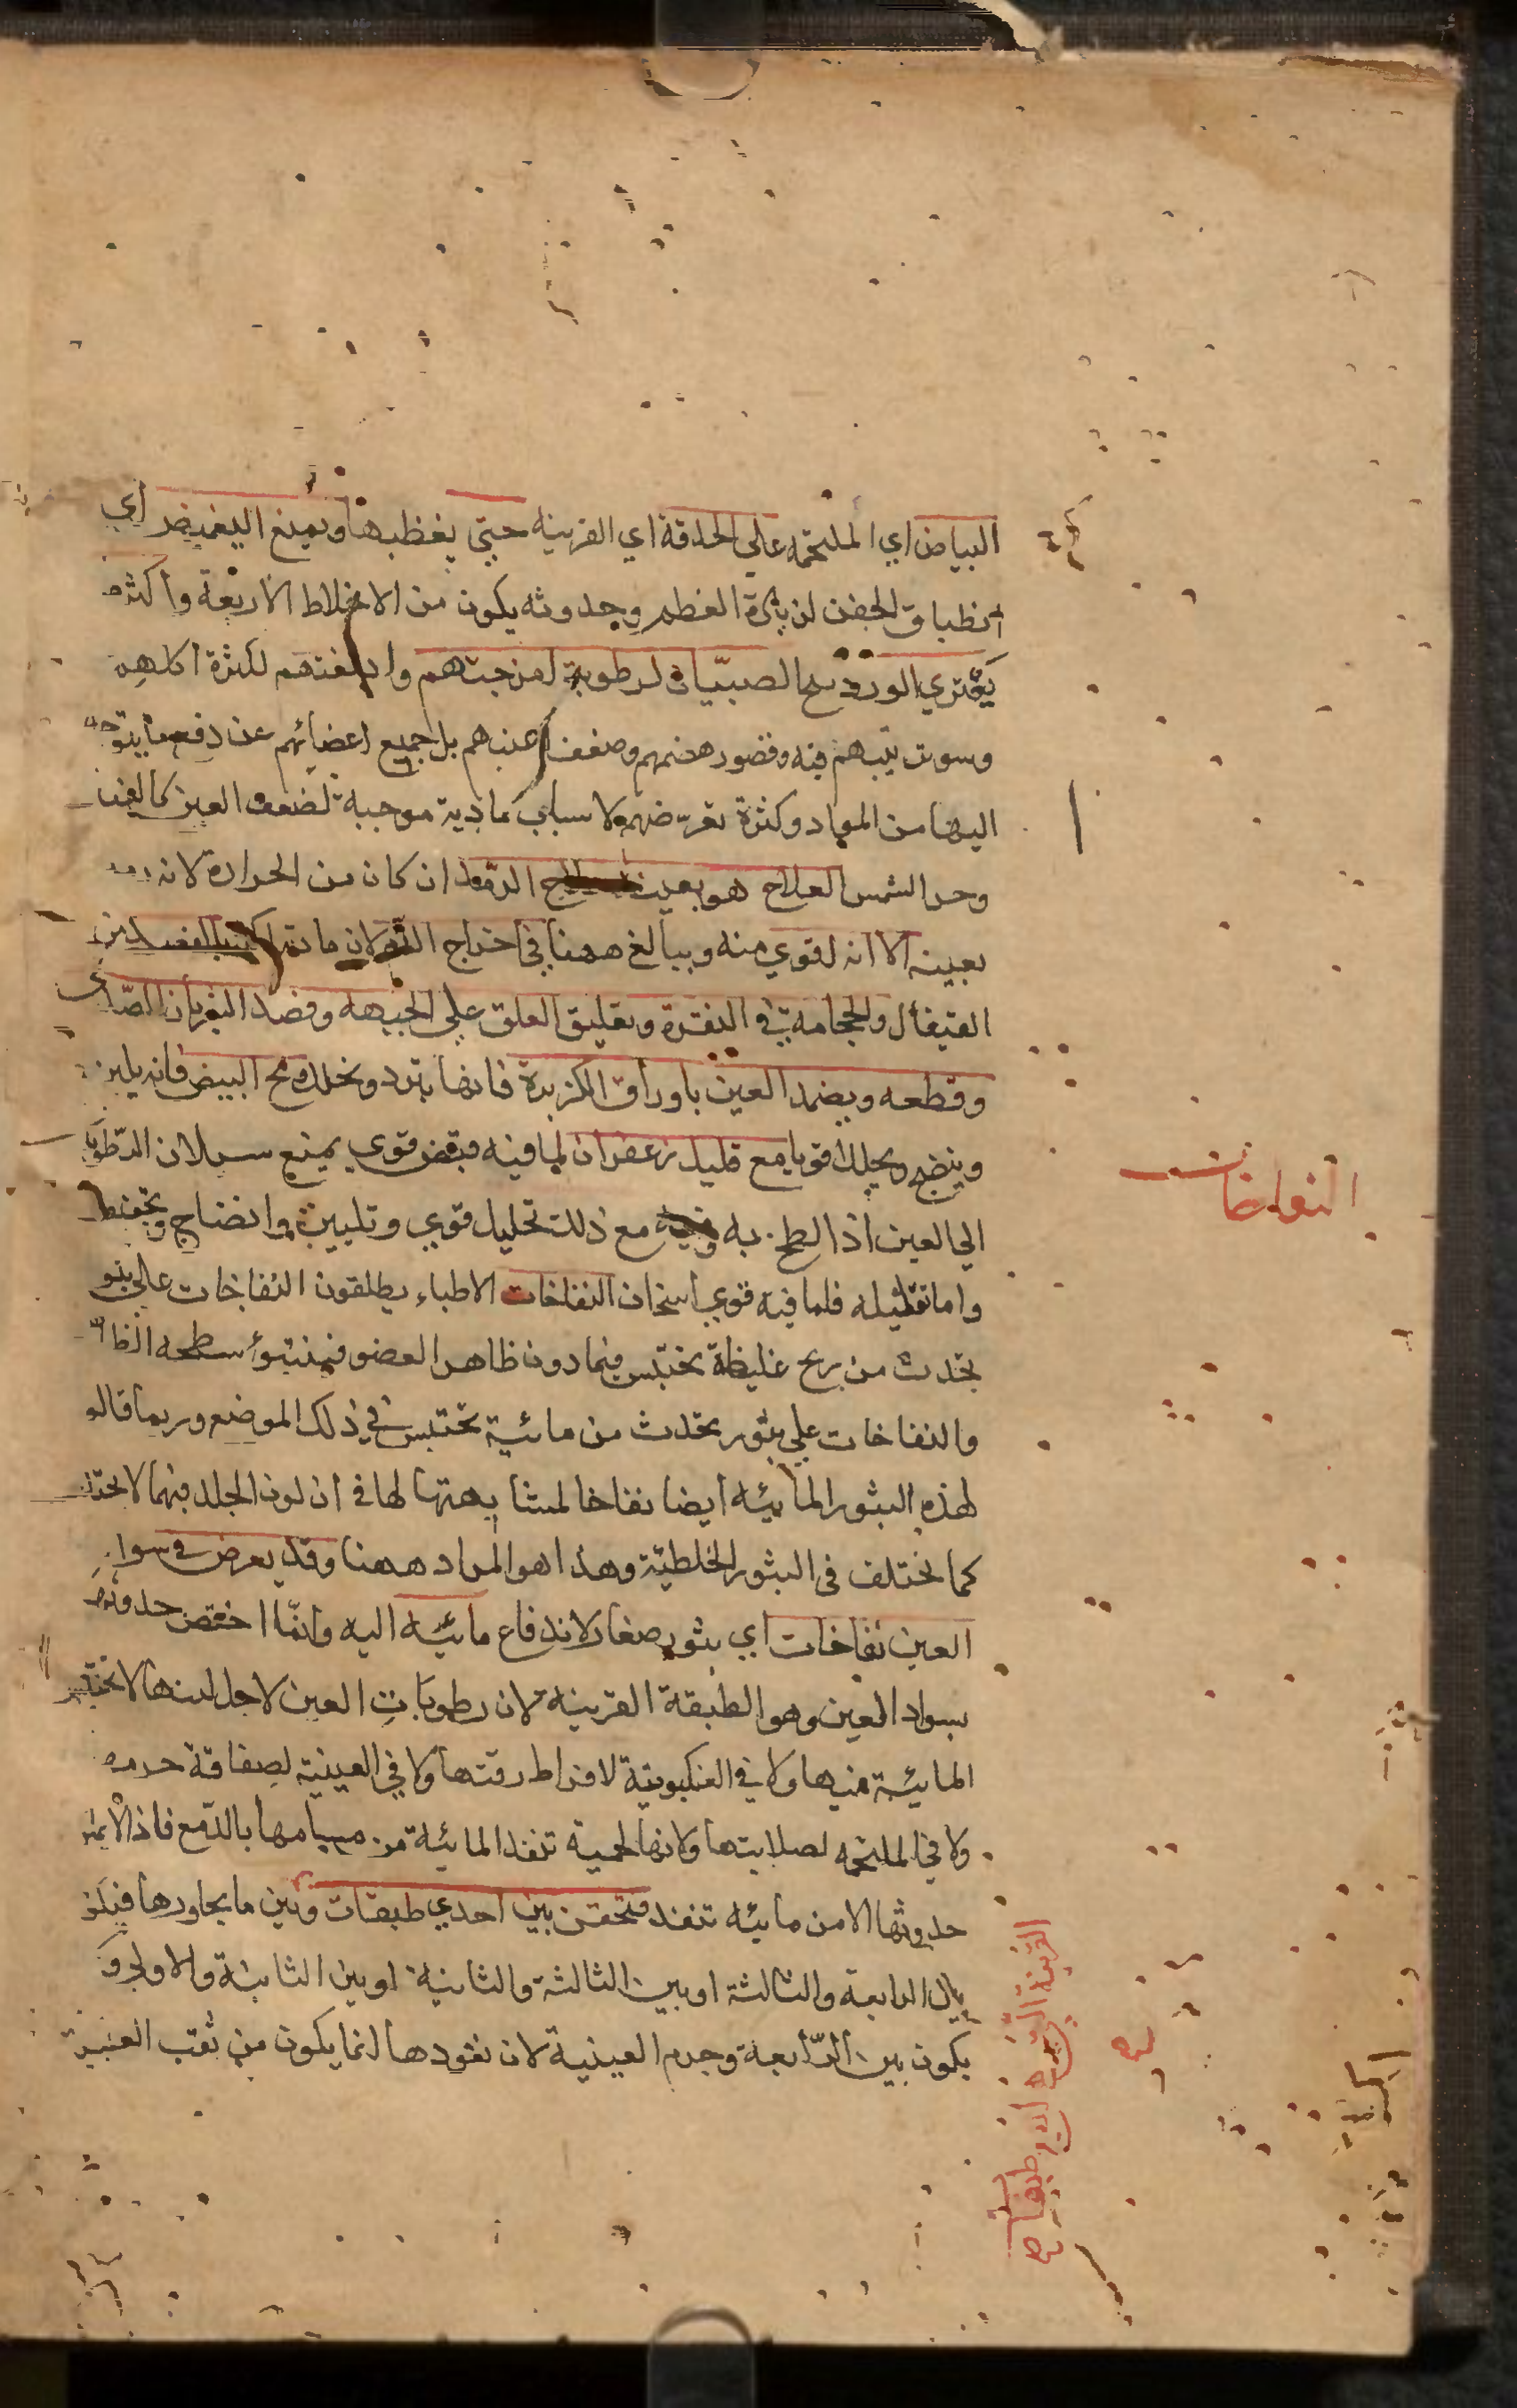 البياض اي الملتحمه على الحدقة اي القرنيه حتي يغطيها ويمنع التغميض اي
انطباق الجفن لزيادة العظم وحدوثه يكون من الاخلاط الاربعة واكثره
يعتري الوردينج الصبيان لرطوبة امزجتهم وادمغتهم لكثرة اكلهم
وسوء تدبيرهم فيه وقصور هضمهم وضعف اعينهم بل جميع اعضائهم عن دفع ما يتوجه
اليها من المواد وكثرة تعرضهم لاسباب بادية موجبة لضعف العين كالغبار
وحر الشمس العلاج هو بعينه علاج الرمد ان كان من الحرارة لانه رمد
بعينه الا انه اقوي منه ويبالغ ههنا في اخراج الدم لان مادته اكثر بالفصد من
القيفال والحجامة في النقرة وتعليق العلق علي الجبهه وفصد الشريان الصدغي
وقطعه ويضمد العين باوراق الكزبرة فانها تبرد وتحلل ومح البيض فانه يلين
وينضج ويحلل قويا مع قليل زعفران لما فيه قبض قوي يمنع سيلان الرطوبات
الي العين اذا لطخ به وفيه مع ذلك تحليل قوي وتليين وانضاج
واما تقليله فلما فيه قوي اسخان النفاخات الاطباء يطلقون النفاخات علي بثور
تحدث من ريح غليظة تحتبس فيما دون ظاهر العضو فينتوء سطحه الظاهر
والنفاخات علي بثور تحدث من مائية تحتبس في ذلك الموضع وربما قالوا
لهذه البثور المائيه ايضا نفاخا لمشابهتها لها في ان لون الجلد فيهما لا يختلف
كما يختلف في البثور الخلطية وهذا هو المراد ههنا وقد يعرض في سواد
العين نفاخات اي بثور صغار لاندفاع مائيه اليه وانما اختص حدوثها
بسواد العين وهو الطبقة القرنيه لان رطوبات العين لاجل لينها لا تحتبس
المائية فيها ولا في العنكبوتية لافراط رقتها ولا في العينية لصفاقة جرمه
ولا في الملتحمه لصلابتها ولانها لحمية تنفذ المائية من مسامها بالدمع فاذا لا يمكن
حدوثها الا من مائيه تنفذ فتحقن بين احدي طبقات وبين ما يجاورها فيكون
بين الرابعة والثالثة او بين الثالثة والثانية او بين الثانية والاولي و
يكون بين الرابعة وجرم العينية لان نفوذها انما يكون من ثقب العنبية
النفاخات
القرنية التي لها اربع طبقات